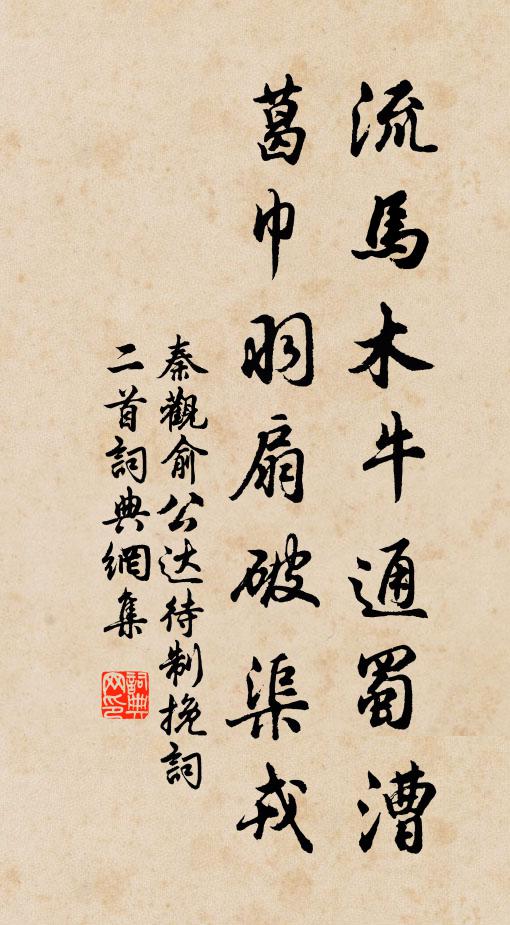 流馬木牛通蜀漕
葛巾羽扇破渠戎
秦觀俞公达待制挽詞
二首詞典網集
詞典
网印